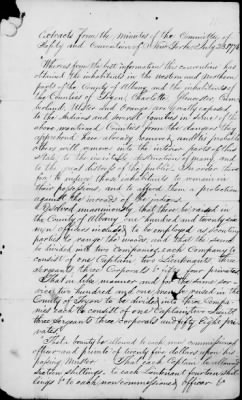 Extracts from the Minutes of the Committee of
Safety and Convention of New York July 1778
Whereas from the best information this convention has
obtained the inhabitants in the western and northern
parts of the County of Albany and the inhabitants of
the Counties of Tryon, Charlotte, Gloucester, Cum-
berland, Ulster and Orange are greatly exposed
to the Indians and several families in some of the
above mentioned Counties from the dangers they
apprehend have already removed, and it is probable
others will remove into the interior parts of this
state, to the inevitable destruction of many and
to the great distress of the public. In order there-
fore to induce these inhabitants to remain on
their possessions, and to afford them a protection
against the inroads of the Indians.
Resolved unanimously, that there be raised in
the County of Albany, one hundred and twenty six
men officers included to be employed as scouting
parties to range the woods and that the same
be divided into two Companies, each Company to
consist of one Captain two Lieutenants three
sergeants three Corporals & fifty four privates.
That in like manner and for the same ser-
vice two hundred and one men be raised in the
County of Tryon to be divided into three Compa-
nies each to consist of one Captain two Lieuts
three sergeants three corporals and fifty eight pri-
vates.
That a bounty be allowed to each non commissioned
officer and private of twenty five dollars upon his
passing muster. That each Captain be allowed
sixteen shillings, to each Lieutenant fourteen shil-
lings & to each non commissioned officer &